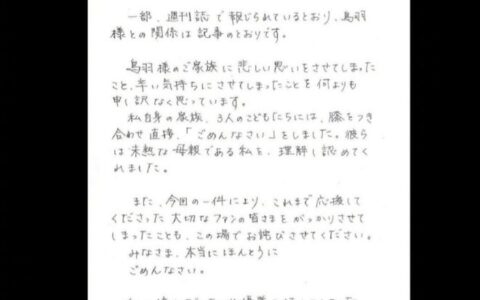 一部、週刊誌で報じられているとおり、鳥羽
様との関係は記事のとおりです。
鳥羽様のご家族に悲しい思いをさせてしまった
こと、辛い気持ちにさせてしまったことを何よりも
申し訳なく思っています。
私自身の家族、3人のこどもたちには、膝をつき
合わせ直接、「ごめんなさい」をしました。彼ら
は未熟な母親である私を、理解し認めてく
れました。
また、今回の一件により、これまで応援して
くださった大切なファンの皆さまをがっかりさせて
しまったことも、この場でお詫びさせてください。
みなさま、本当にほんとうに
ごめんなさい。